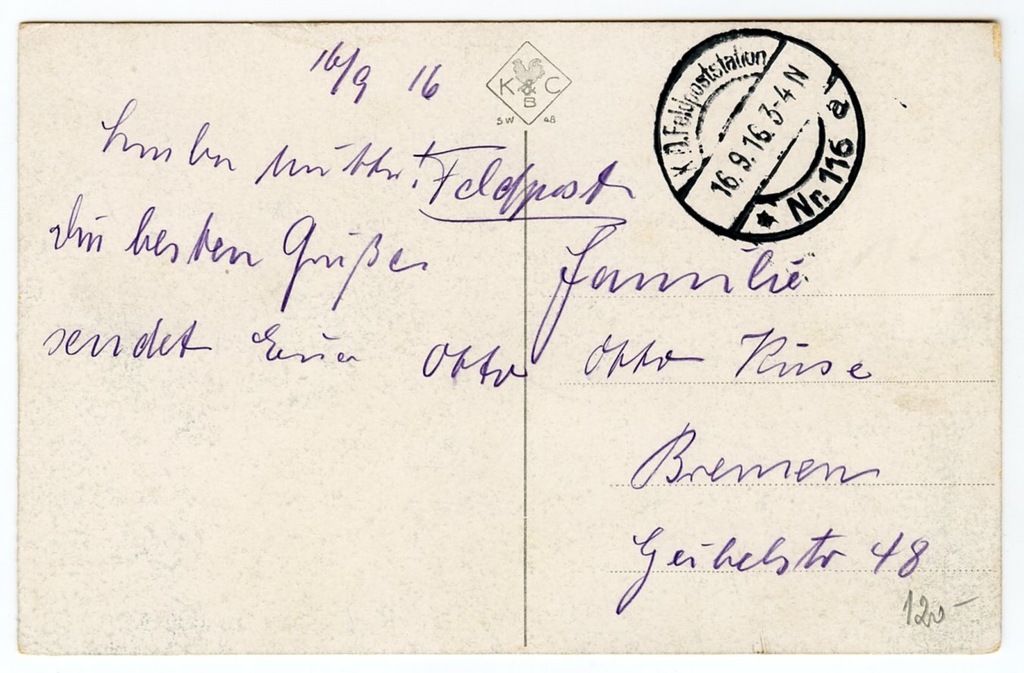 16/9 16
K & C
B
SW 48
K.D.Feldpoststation
16.9.16.3-4 N
a
* Nr. 116
Feldpost
Die besten Grüße
sendet Euer Otto
Familie
Otto Kuse
Bremen
Geibelstr 48
120-